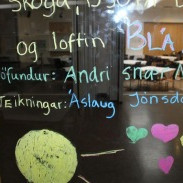 og loftin BLÁ
Höfundur: Andri Snær M
Teikningar: Áslaug Jónsdó